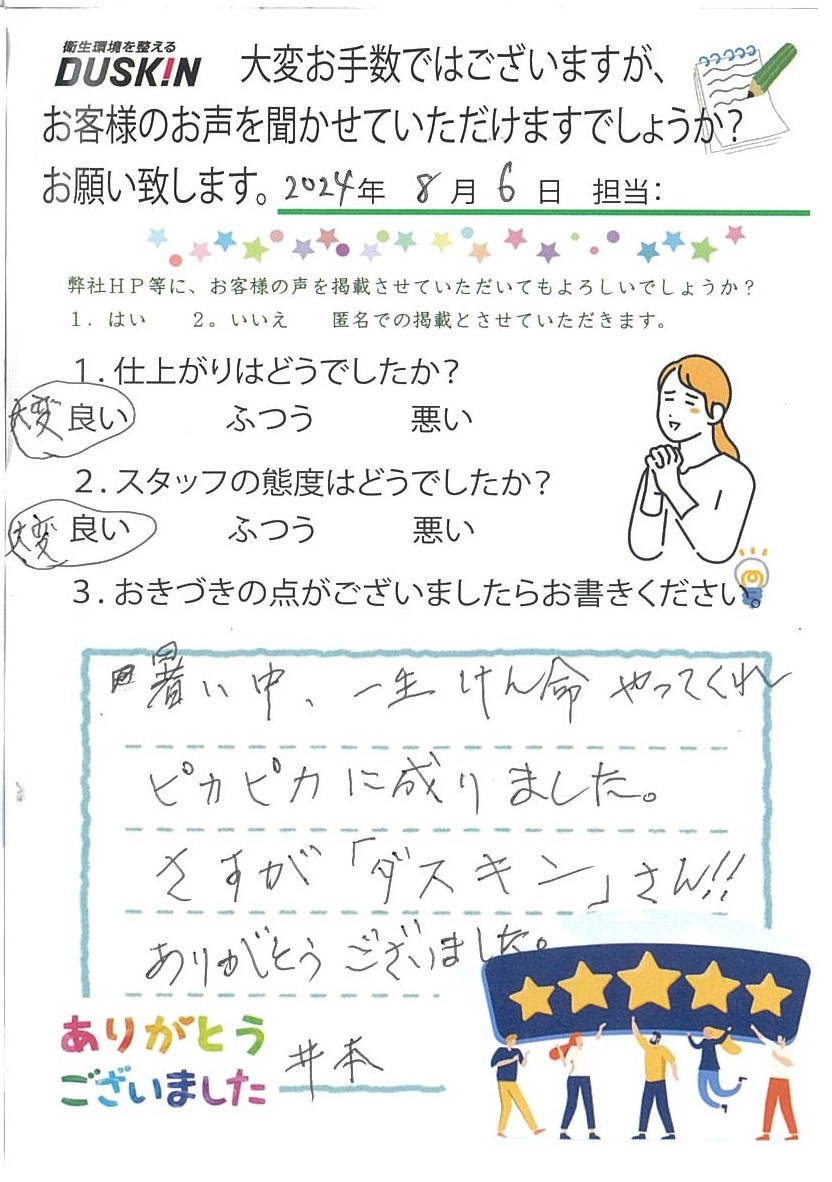 衛生環境を整える
DUSKIN 大変お手数ではございますが、
お客様のお声を聞かせていただけますでしょうか?
お願い致します。2024年 8月 6日 担当:
弊社HP等に、お客様の声を掲載させていただいてもよろしいでしょうか?
1. はい 2。いいえ 匿名での掲載とさせていただきます。
1. 仕上がりはどうでしたか?
大変 良い ふつう 悪い
2. スタッフの態度はどうでしたか?
大変 良い ふつう 悪い
3. おきづきの点がございましたらお書きください。
暑い中、一生けん命やってくれ
ピカピカに成りました。
さすが「ダスキン」さん!!
ありがとうございました。
ありがとう
ございました 井本